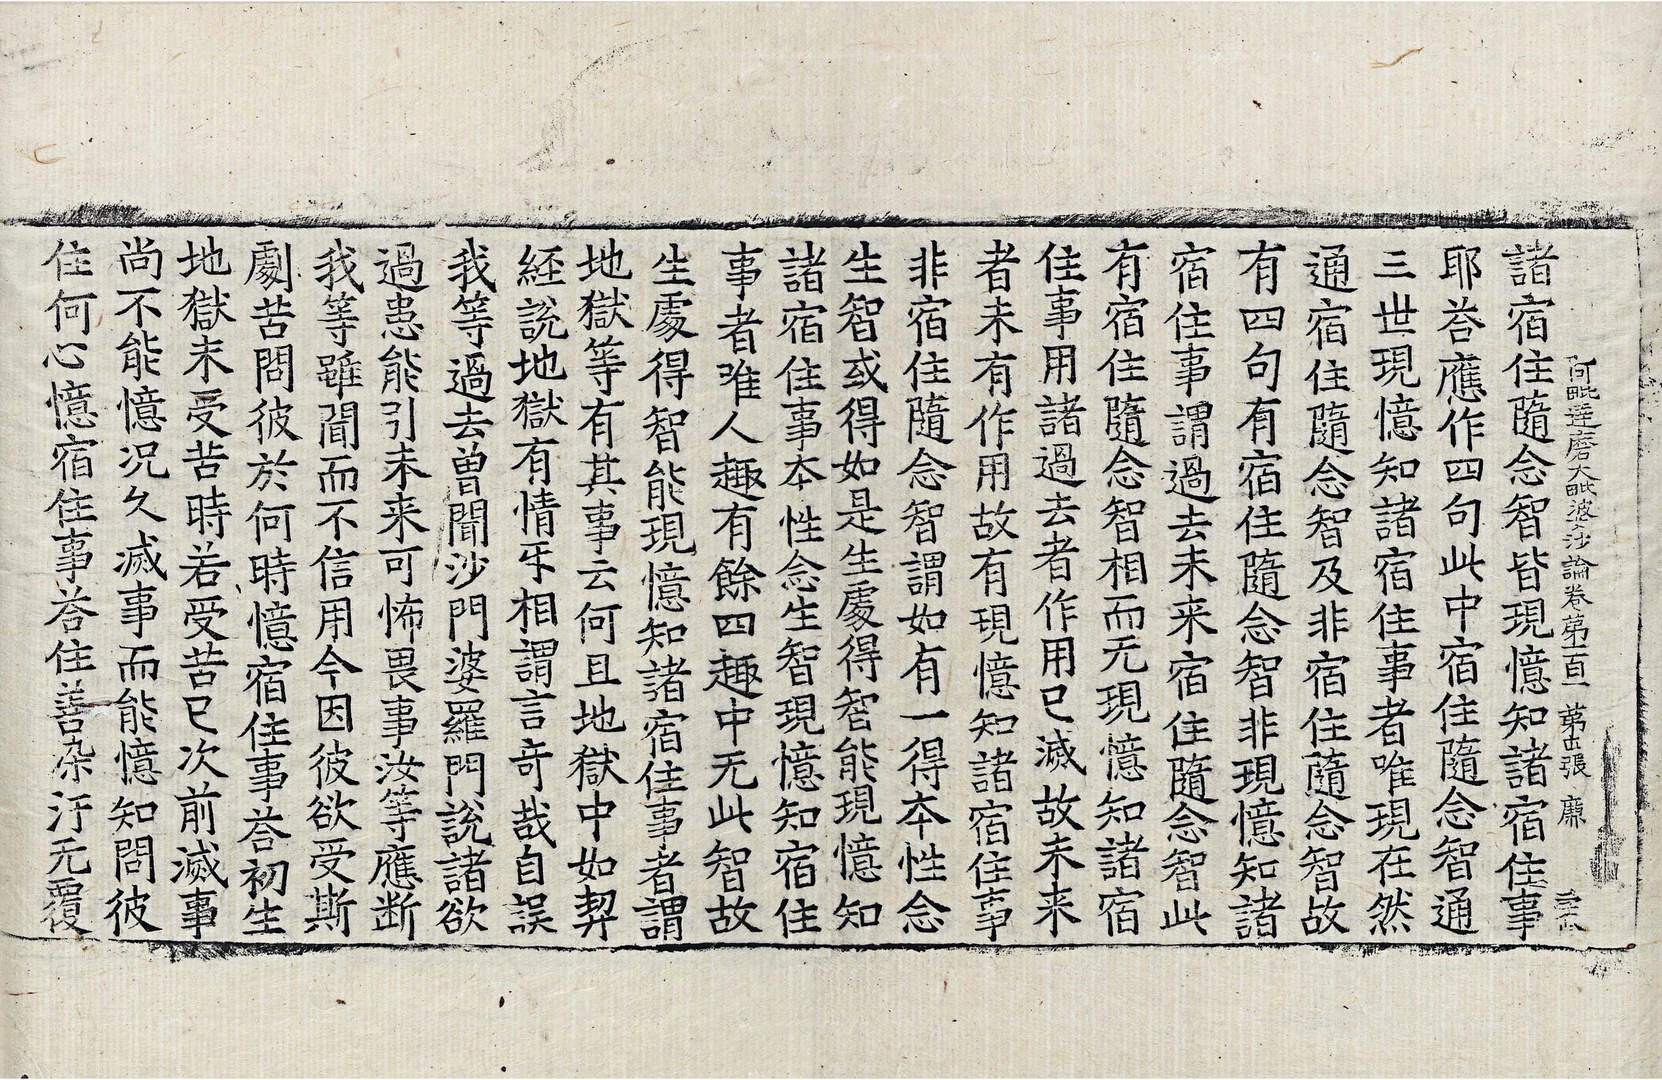 阿毗達磨大毗婆沙論卷第一百一 第 張 廉
諸宿住隨念智皆現憶知諸宿住事
耶荅應作四句此中宿住隨念智通
三世現憶知諸宿住事者唯現在然
通宿住隨念智及非宿住隨念智故
有四句有宿住隨念智非現憶知諸
宿住事謂過去未来宿住隨念智此
有宿住隨念智相而无現憶知諸宿
住事用諸過去者作用已滅故未来
者未有作用故有現憶知諸宿住事
非宿住隨念智謂如有一得本性念
生智或得如是生處得智能現憶知
諸宿住事本性念生智現憶知宿住
事者唯人趣有餘四趣中无此智故
生處得智能現憶知諸宿住事者謂
地獄等有其事云何且地獄中如契
経說地獄有情互相謂言奇哉自誤
我等過去曾聞沙門婆羅門說諸欲
過患能引未来可怖畏事汝等應断
我等雖聞而不信用今因彼欲受斯
劇苦問彼於何時憶宿住事荅初生
地獄未受苦時若受苦已次前滅事
尚不能憶況久滅事而能憶知問彼
住何心憶宿住事荅住善染汙无覆